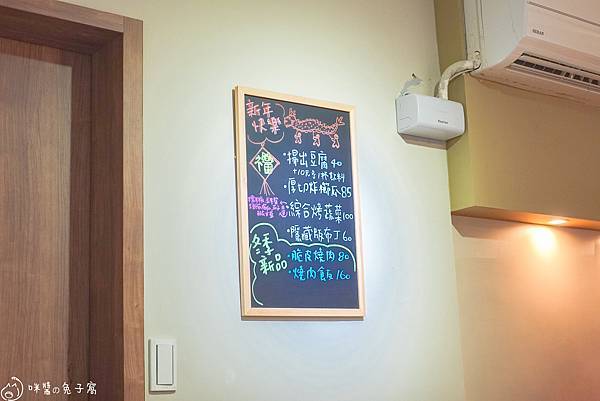 新年
快樂
福
·揚出豆腐40
+10元多1杯飲料
·厚切炸地瓜85
·綜合烤蔬菜100
·隱藏版布丁60
冬季
新品
·脆皮燒肉80
·燒肉飯160
咪醬の兔子窩